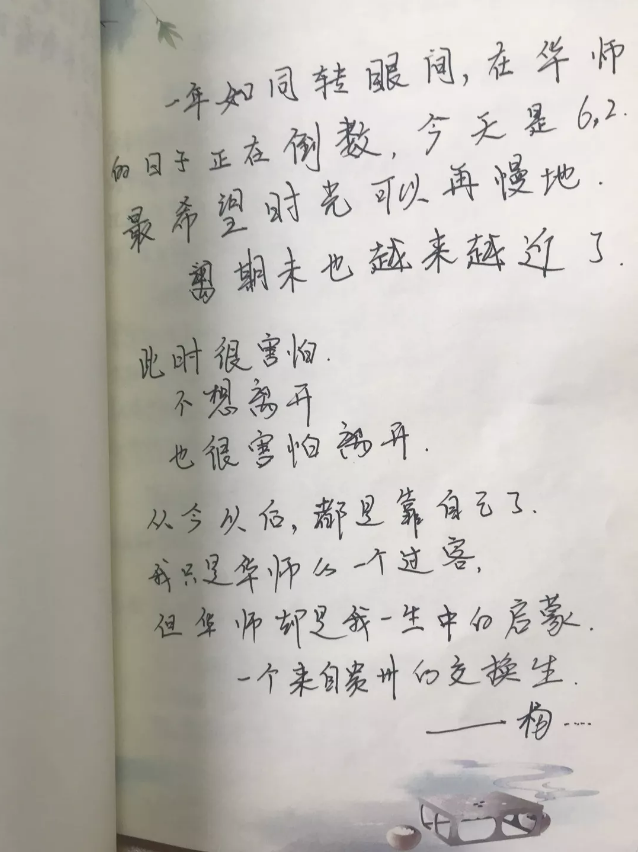 一年如同转眼间，在华师
的日子正在倒数，今天是6.2.
最希望时光可以再慢地.
离期末也越来越近了.
此时很害怕.
不想离开
也很害怕离开.
从今以后，都是靠自己了.
我只是华师的一个过客，
但华师却是我一生中的启蒙.
一个来自贵州的交换生.
——杨……